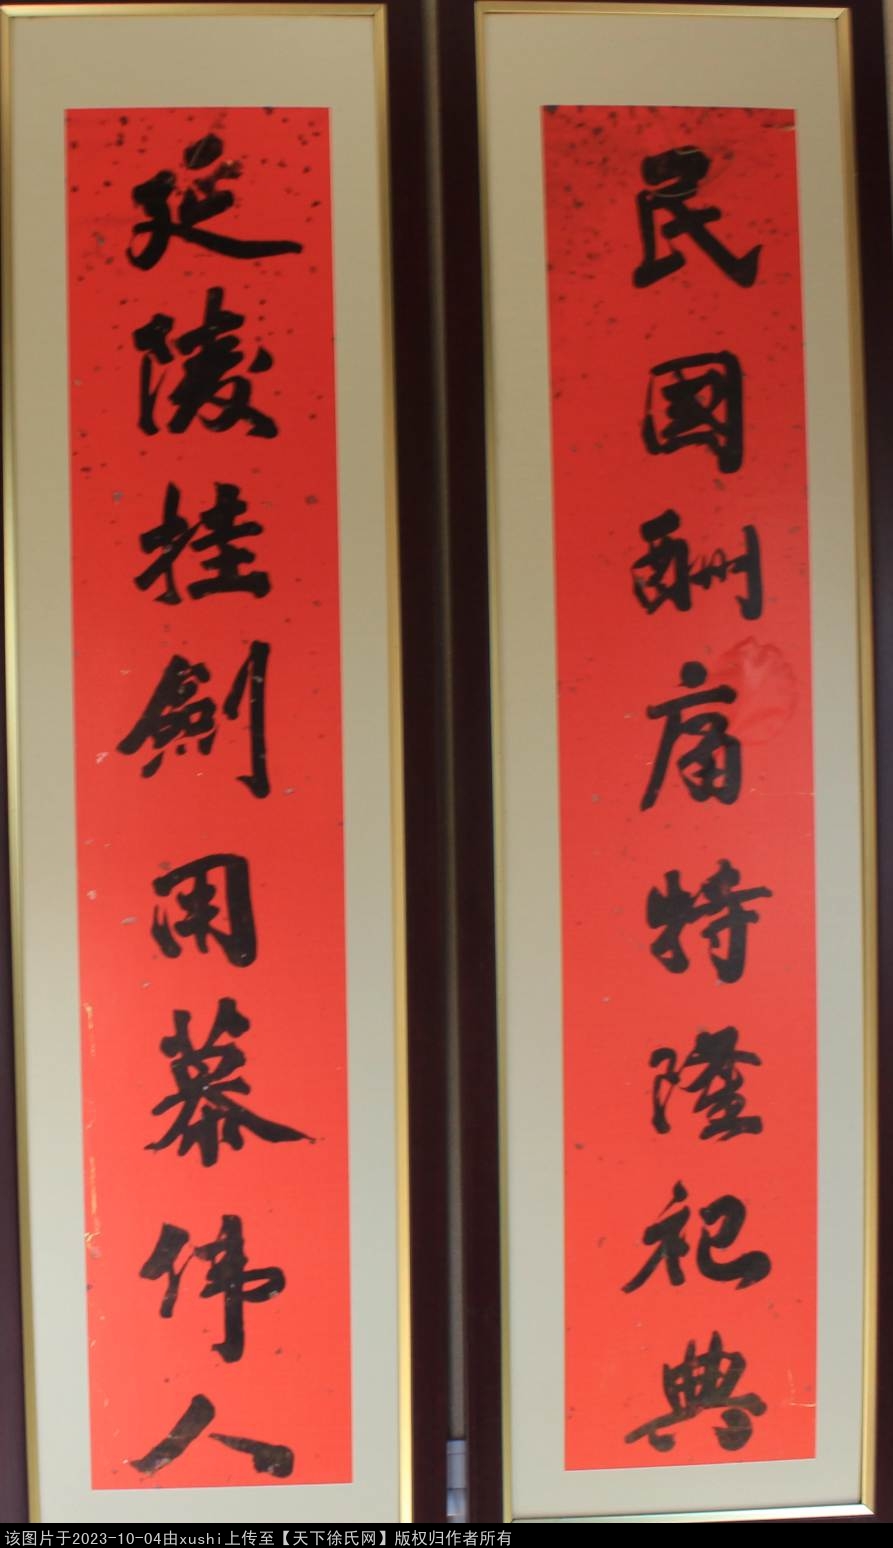 民國酬庸特隆祀典
延陵挂劍用慕偉人
该图片于2023-10-04由xushi上传至【天下徐氏网】版权归作者所有